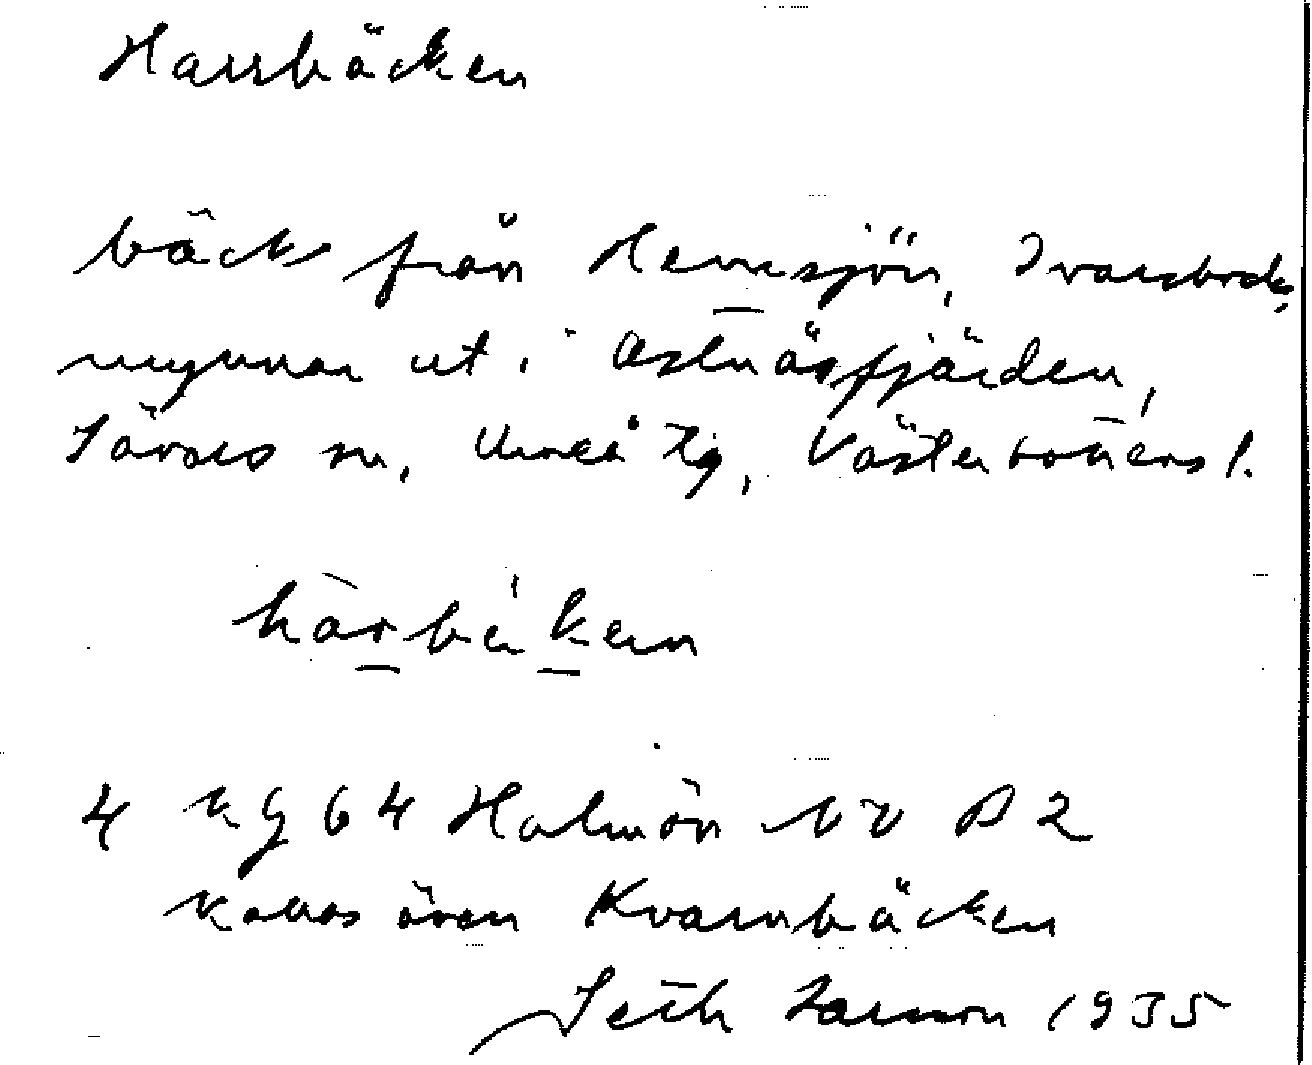 Harrbäcken
bäck från Hemsjön, Ivarsboda,
mynnar ut i Östnäsfjärden,
Sävars sn, Umeå tg, Västerbottens l.
hàrbé̩ken
4 kg 64 Holmön NV B 2
kallas även Kvarnbäcken
Seth Larsson 1935